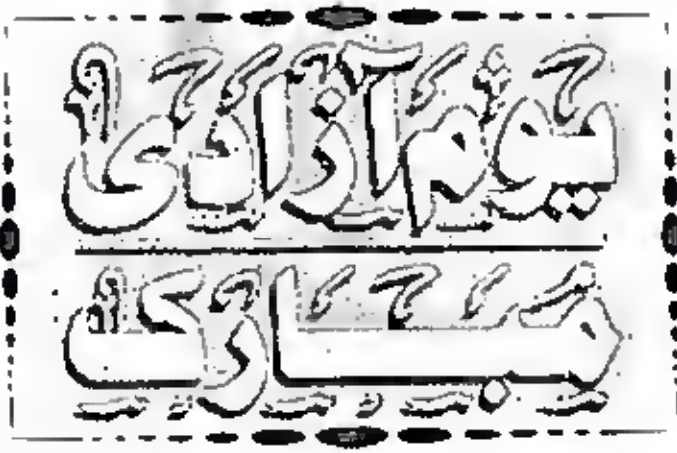 یوم آزادی
مبارک